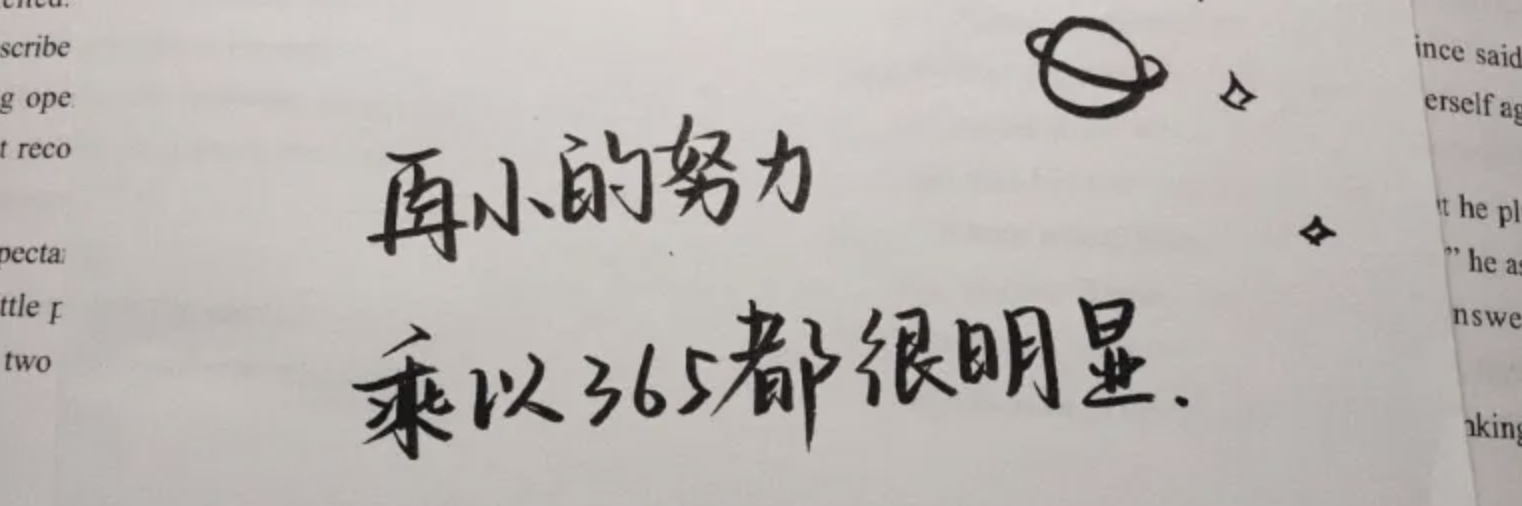 scribe
g ope
t reco
pecta
ttle p
two
再小的努力
乘以365都很明显.
ince said
erself ag
t he pl
" he as
nswe
nking